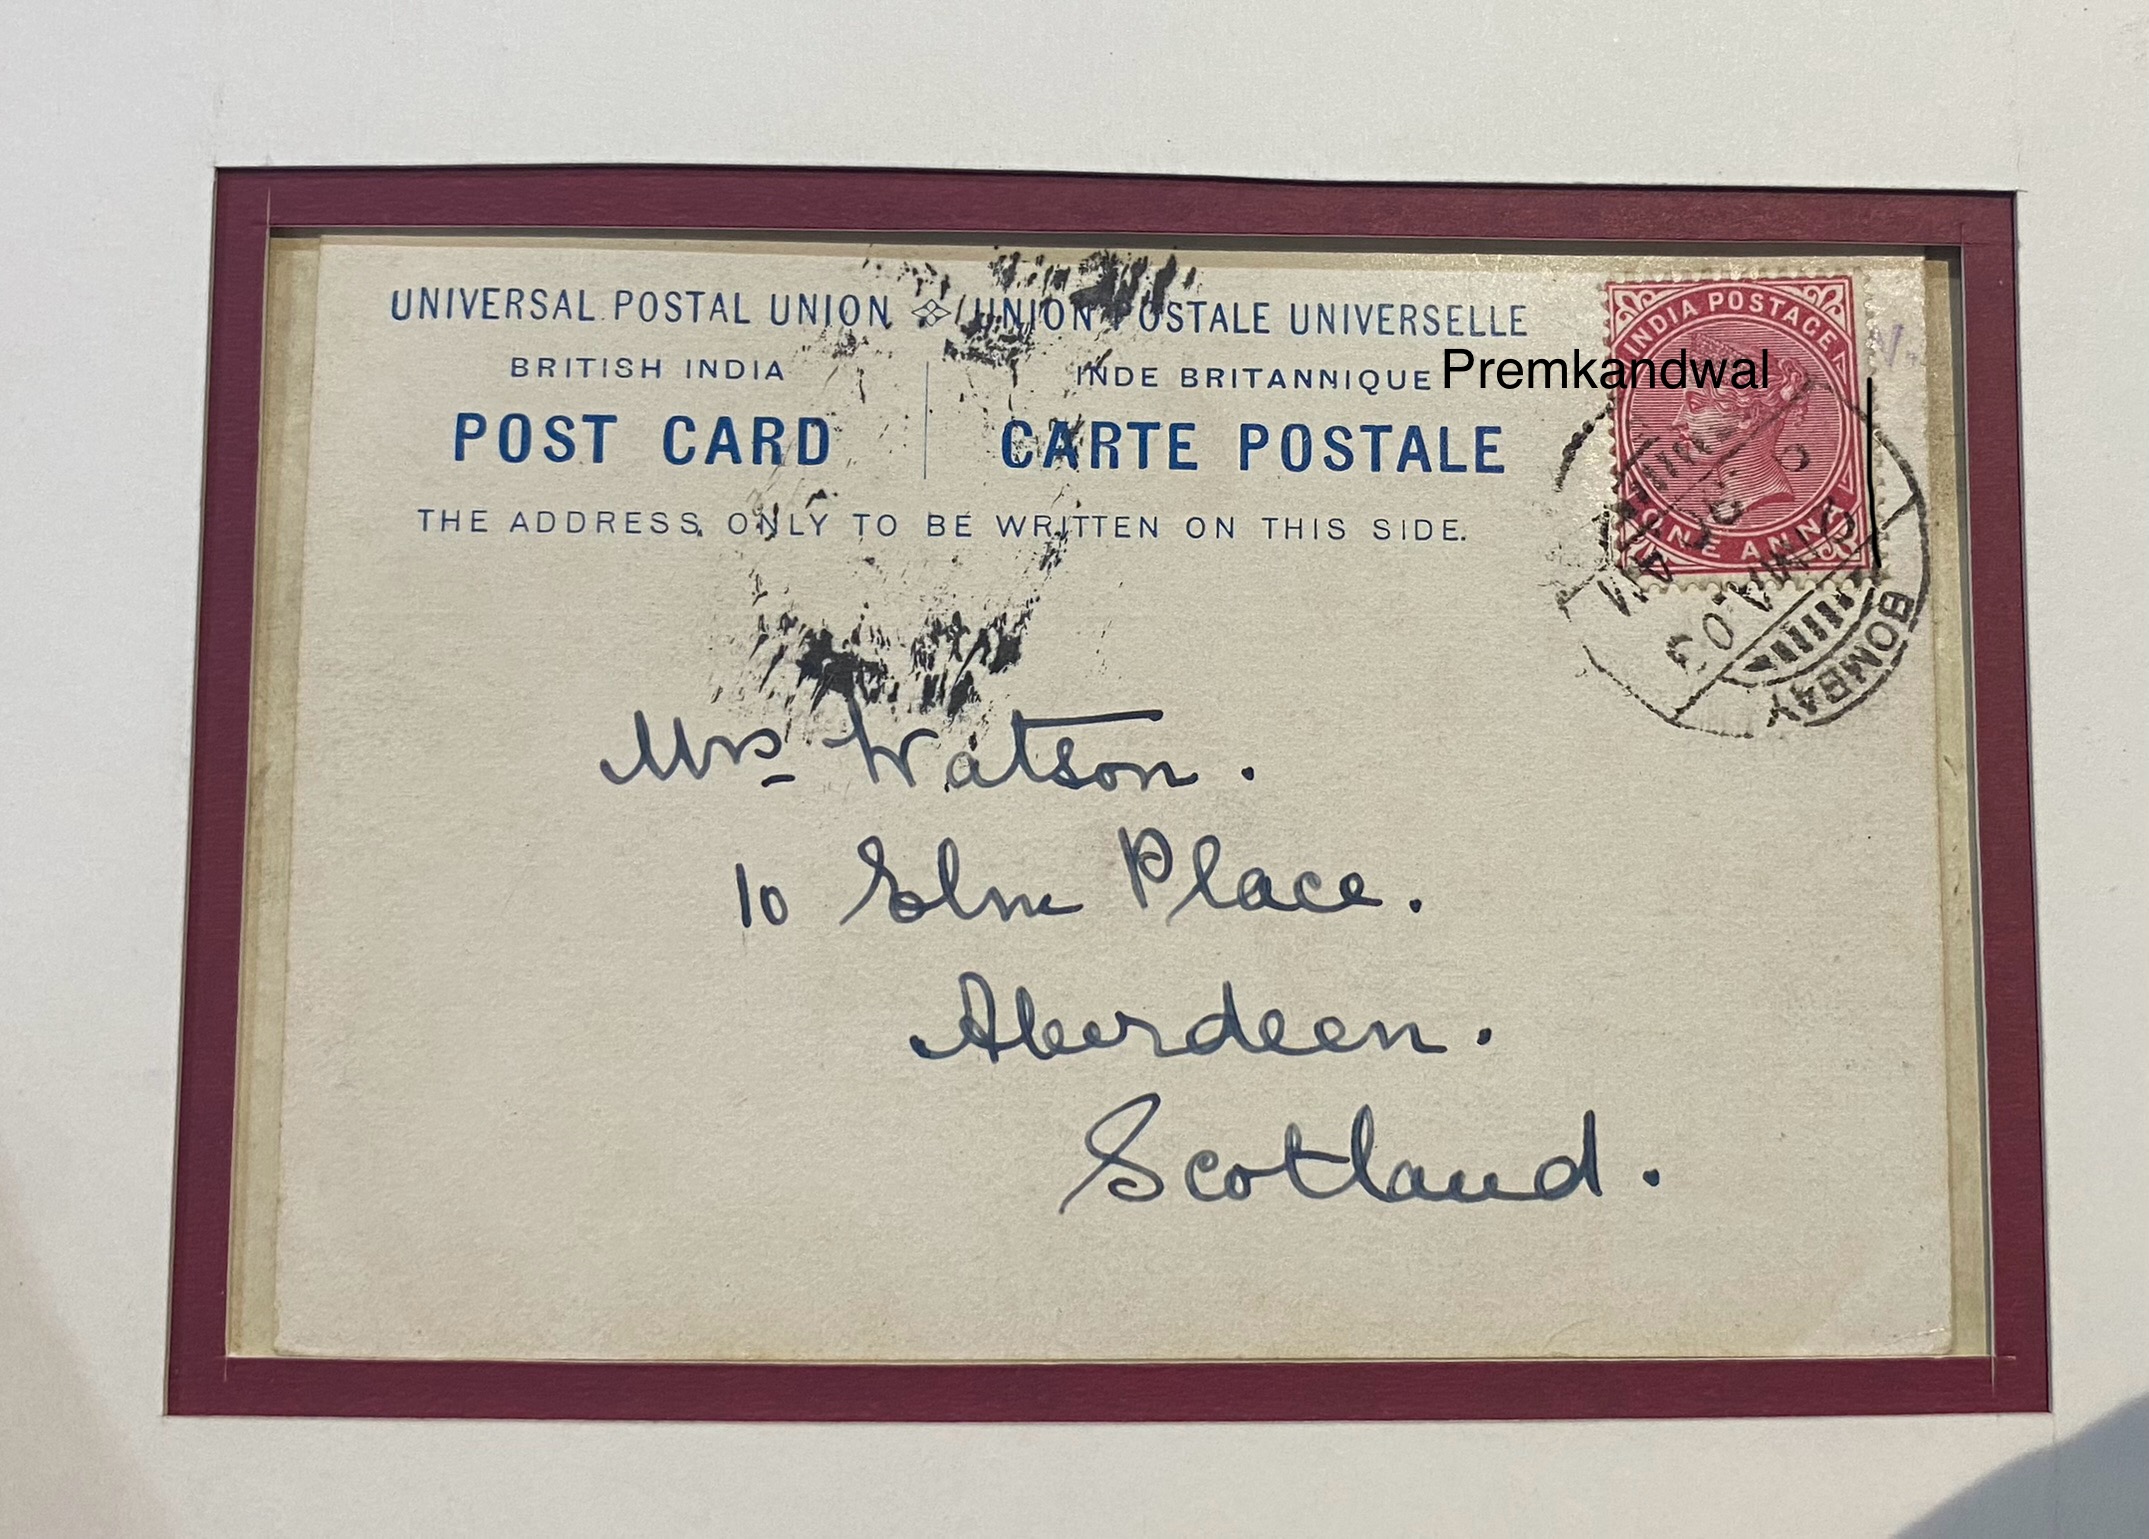 UNIVERSAL POSTAL UNION UNION POSTALE UNIVERSELLE
BRITISH INDIA INDE BRITANNIQUE
Premkandwal
POST CARD CARTE POSTALE
THE ADDRESS ONLY TO BE WRITTEN ON THIS SIDE.
INDIA POSTAGE
ONE ANNA
BOMBAY
Mrs Watson.
10 Elm Place.
Aberdeen.
Scotland.